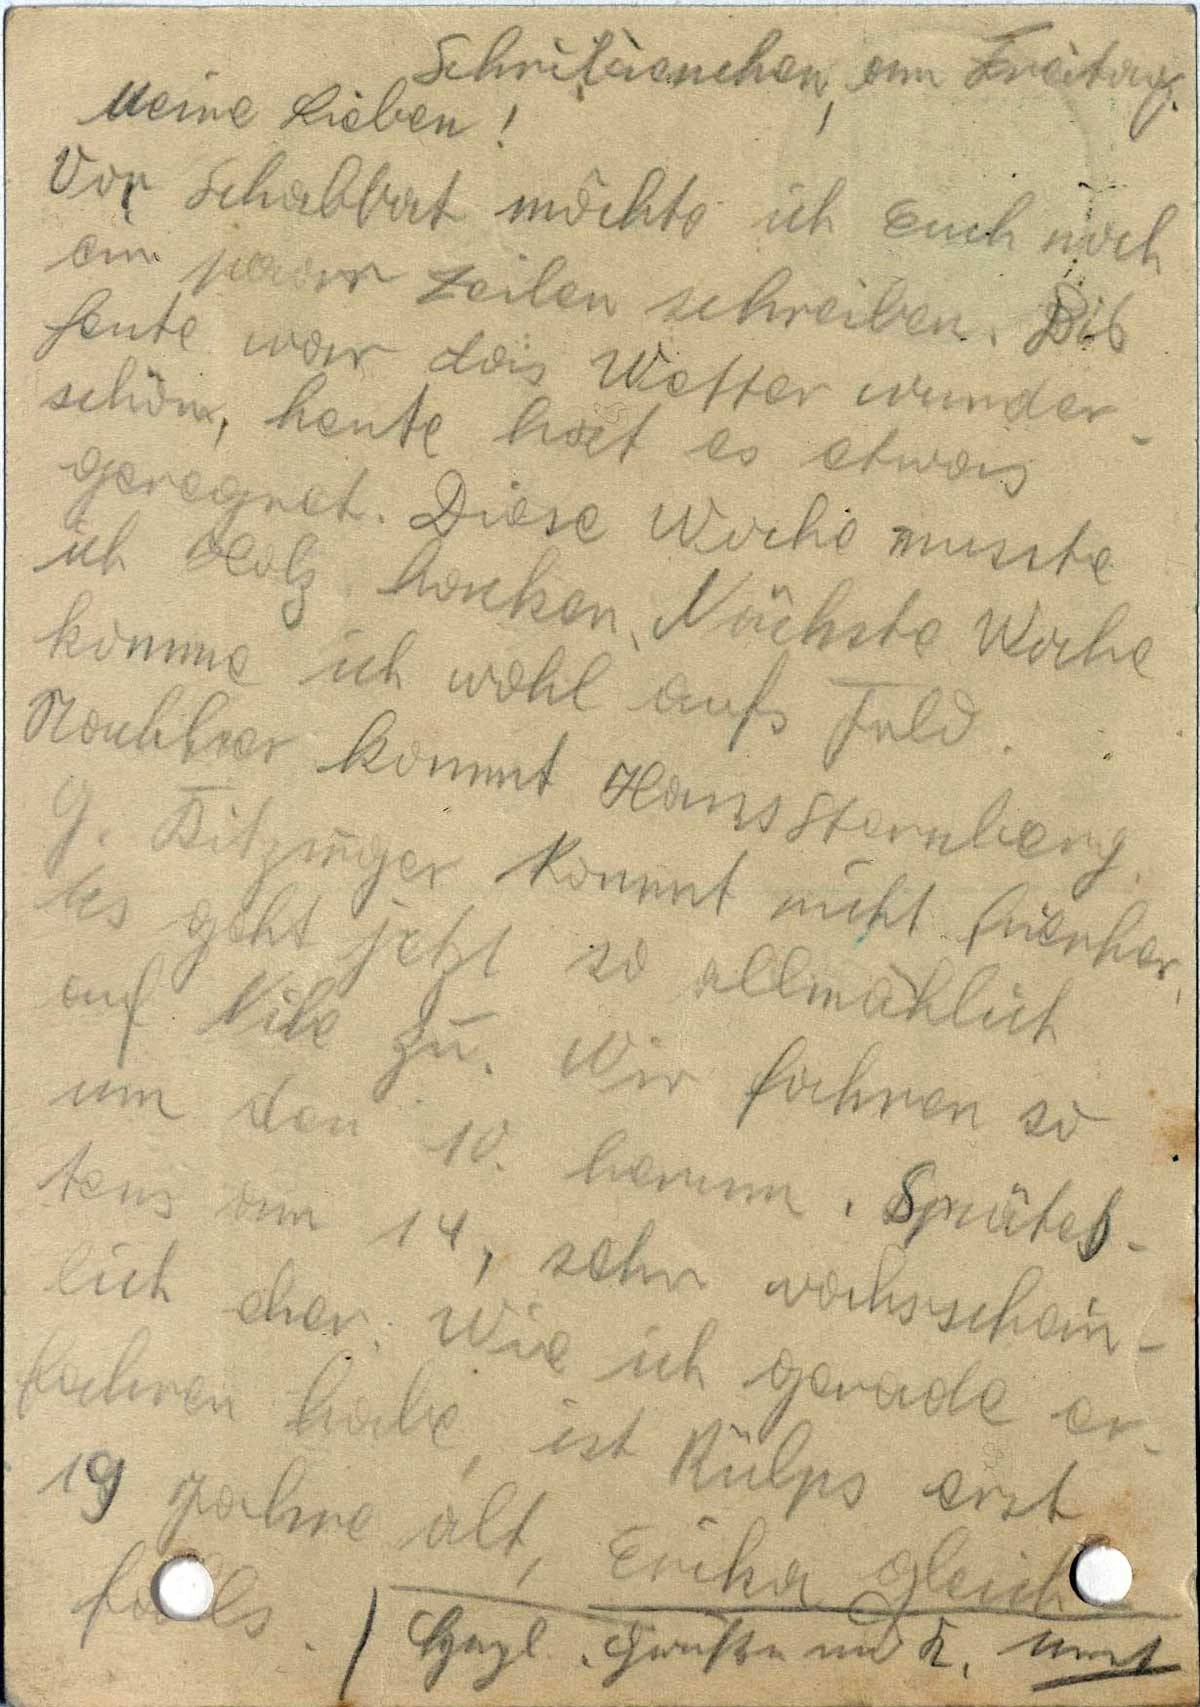 Schniebinchen, am Freitag.
Meine Lieben!
Vor Schabbat möchte ich Euch noch
ein paar Zeilen schreiben. Bis
heute war das Wetter wunder-
schön, heute hat es etwas
geregnet. Diese Woche musste
ich Holz hacken. Nächste Woche
komme ich wohl aufs Feld.
Nachher kommt Hans Sternberg.
G. kommt nicht hierher.
Es geht jetzt so allmählich
auf zu. Wir fahren so
um den 10. herum. Spätes-
tens am 14, sehr wahrschein-
lich eher. Wie ich gerade er-
fahren habe, ist Külps erst
19 Jahre alt, Erika gleich
falls.
Grüße und K.